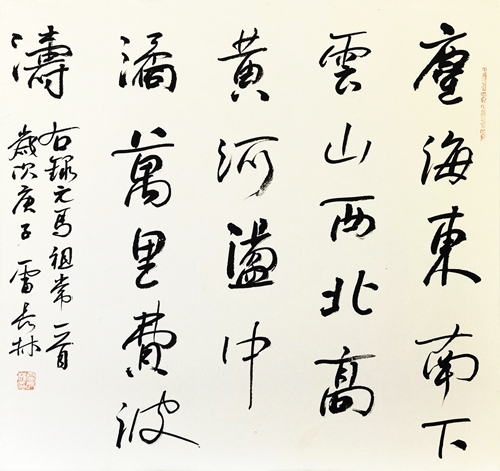 塵海東南下
雲山西北高
黄河盪中
潏萬里費波
濤
右録元馬祖常一首
歲次庚子 雷長林